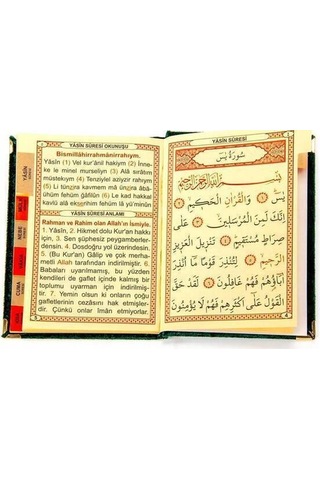 YÂSÎN SÛRESİ OKUNUŞU
Bismillâhirrahmânirrahıym.
Yâsîn (1) Vel kur'ânil hakiym (2) İnne-
ke le minel murseliyn (3) Alâ sırâtım
müstekıym (4) Tenziylel aziyzir rahıym
(5) Li tünzira kavmem mâ ünzira âbâ-
ühüm fehüm gafilûn (6) Le kad hakkal
kavlü alâ ekserihim fehüm lâ yü'minûn
YÂSÎN SÛRESİ ANLAMI
Rahman ve Rahim olan Allah'ın İsmiyle.
1. Yâsîn, 2. Hikmet dolu Kur'an hakkı
için, 3. Sen şüphesiz peygamberler-
densin. 4. Dosdoğru yol üzerindesin.
5. (Bu Kur'an) Gâlip ve çok merha-
metli Allah tarafından indirilmiştir. 6.
Babaları uyarılmamış, bu yüzden
kendileri de gaflet içinde kalmış bir
toplumu uyarman için indirilmiş-
tir. 7. Yemin olsun ki onların çoğu
gafletlerinin cezasını hak etmişler-
dir. Çünkü onlar îman etmiyorlar.
5
YÂSÎN
NEBE
CUMA
YÂSÎN SÛRESİ
سُورَةُ يٰسٓ
بِسْمِ اللّٰهِ الرَّحْمٰنِ الرَّحِيمِ
يٰسٓ ﴿١﴾ وَالْقُرْاٰنِ الْحَكِيمِ ﴿٢﴾
اِنَّكَ لَمِنَ الْمُرْسَلِينَ ﴿٣﴾ عَلٰى
صِرَاطٍ مُسْتَقِيمٍ ﴿٤﴾ تَنْزِيلَ الْعَزِيزِ
الرَّحِيمِ ﴿٥﴾ لِتُنْذِرَ قَوْمًا مَٓا اُنْذِرَ
اٰبَٓاؤُ۬هُمْ فَهُمْ غَافِلُونَ ﴿٦﴾ لَقَدْ حَقَّ
الْقَوْلُ عَلٰٓى اَكْثَرِهِمْ فَهُمْ لَا يُؤْمِنُونَ
4